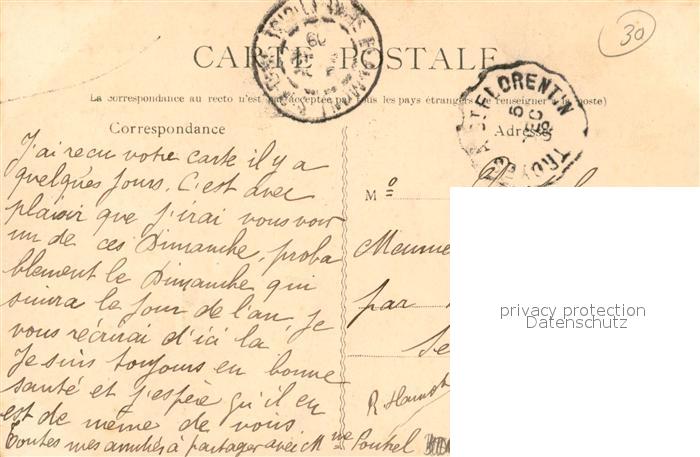 30
CARTE POSTALE
La correspondance au recto n'est pas acceptée par tous les pays étrangers (Se renseigner à la poste)
Correspondance
Adresse
ST FLORENTIN
TROYES
J'ai recu votre carte il y a
quelques jours. C'est avec
plaisir que j'irai vous voir
un de ces Dimanche, proba
blement le Dimanche qui
suivra le jour de l'an, je
vous récrirai d'ici là.
Je suis toujours en bonne
santé et j'espère qu'il en
est de même de vous
Toutes mes amitiés à partager avec Mme Poutrel
Mo
par
privacy protection
Datenschutz